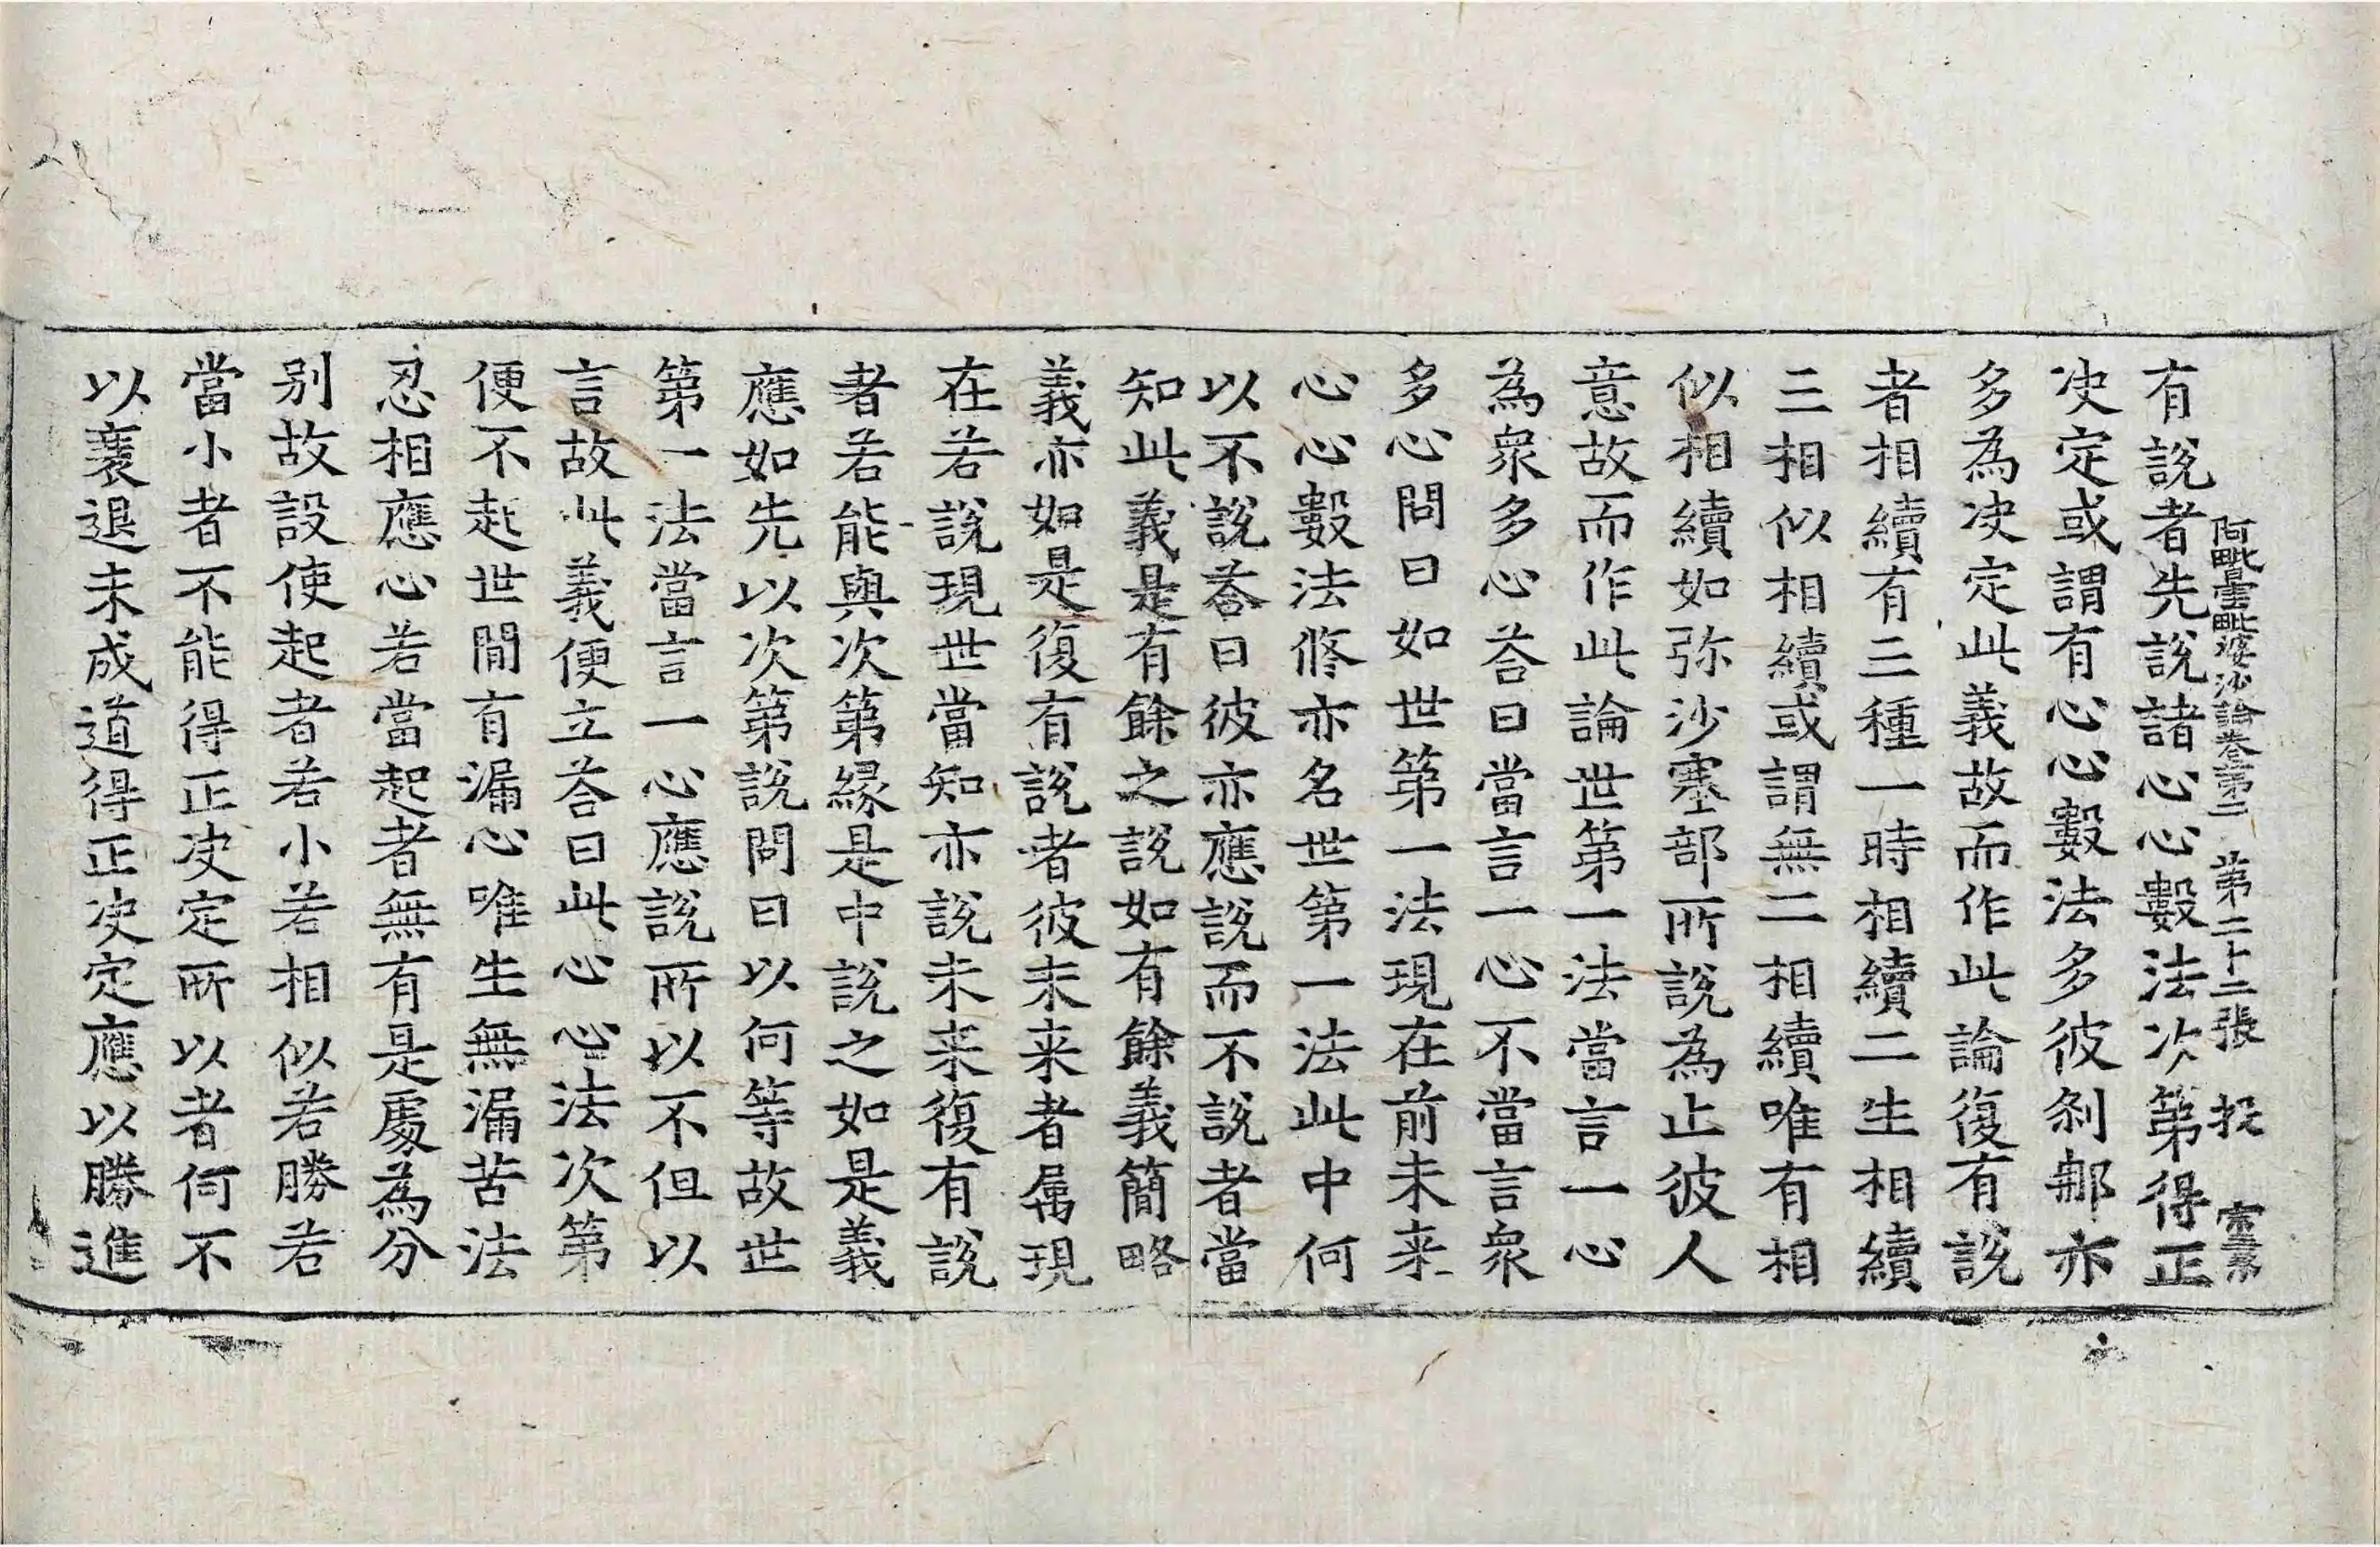 阿毗曇毗婆沙論卷第二 第二十二張 投
有說者先說諸心心數法次第得正
决定或謂有心心數法多彼剎那亦
多為决定此義故而作此論復有說
者相續有三種一時相續二生相續
三相似相續或謂無二相續唯有相
似相續如弥沙塞部所說為止彼人
意故而作此論世第一法當言一心
為衆多心荅曰當言一心不當言衆
多心問曰如世第一法現在前未来
心心數法修亦名世第一法此中何
以不說荅曰彼亦應說而不說者當
知此義是有餘之說如有餘義簡略
義亦如是復有說者彼未来者属現
在若說現世當知亦說未来復有說
者若能與次第緣是中說之如是義
應如先以次第說問曰以何等故世
第一法當言一心應說所以不但以
言故此義便立荅曰此心心法次第
便不起世間有漏心唯生無漏苦法
忍相應心若當起者無有是處為分
别故設使起者若小若相似若勝若
當小者不能得正决定所以者何不
以衰退未成道得正决定應以勝進